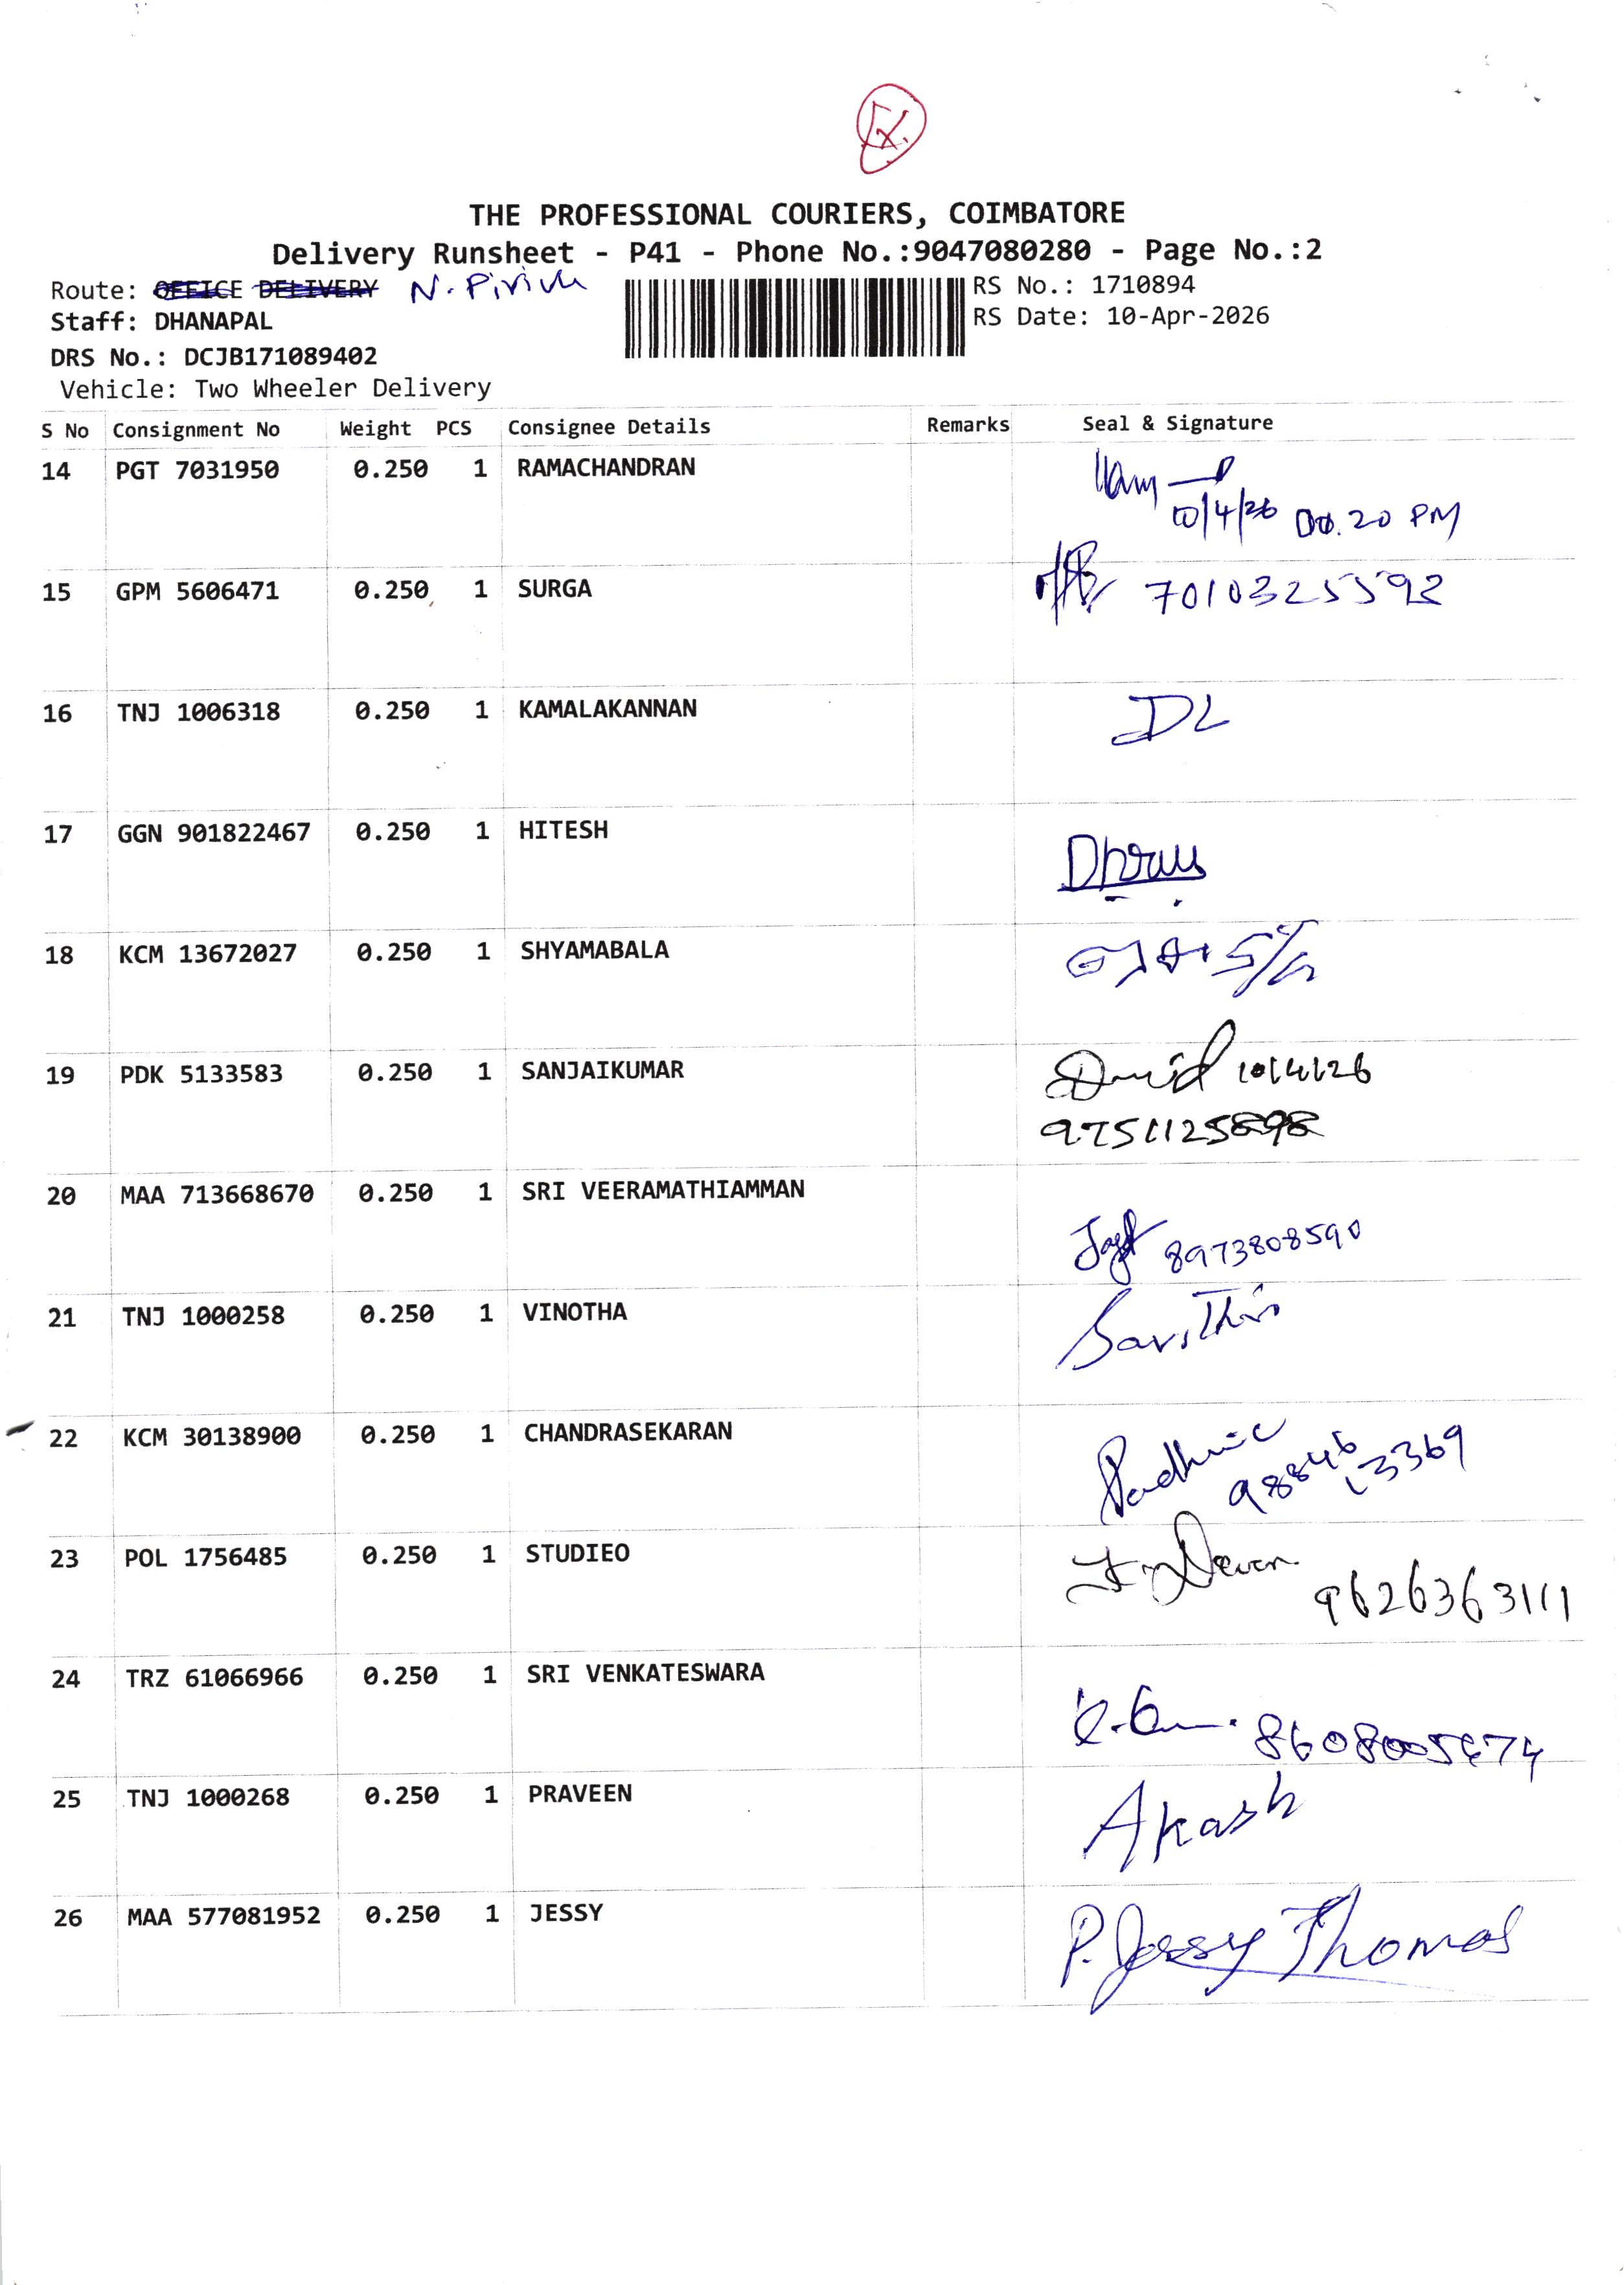 THE PROFESSIONAL COURIERS, COIMBATORE
Delivery Runsheet - P41 - Phone No.:9047080280 - Page No.:2
Route: OFFICE DELIVERY N.
RS No.: 1710894
Staff: DHANAPAL
RS Date: 10-Apr-2026
DRS No.: DCJB171089402
Vehicle: Two Wheeler Delivery
S No Consignment No Weight PCS Consignee Details Remarks Seal & Signature
14 PGT 7031950 0.250 1 RAMACHANDRAN
10/4/26 20 PM
15 GPM 5606471 0.250 1 SURGA 7010325592
16 TNJ 1006318 0.250 1 KAMALAKANNAN DL
17 GGN 901822467 0.250 1 HITESH
18 KCM 13672027 0.250 1 SHYAMABALA
19 PDK 5133583 0.250 1 SANJAIKUMAR David 10/4/26
9751125898
20 MAA 713668670 0.250 1 SRI VEERAMATHIAMMAN
8973808590
21 TNJ 1000258 0.250 1 VINOTHA
22 KCM 30138900 0.250 1 CHANDRASEKARAN
98846
13369
23 POL 1756485 0.250 1 STUDIEO
9626363111
24 TRZ 61066966 0.250 1 SRI VENKATESWARA
25 TNJ 1000268 0.250 1 PRAVEEN Akash
26 MAA 577081952 0.250 1 JESSY P. Jessy Thomas